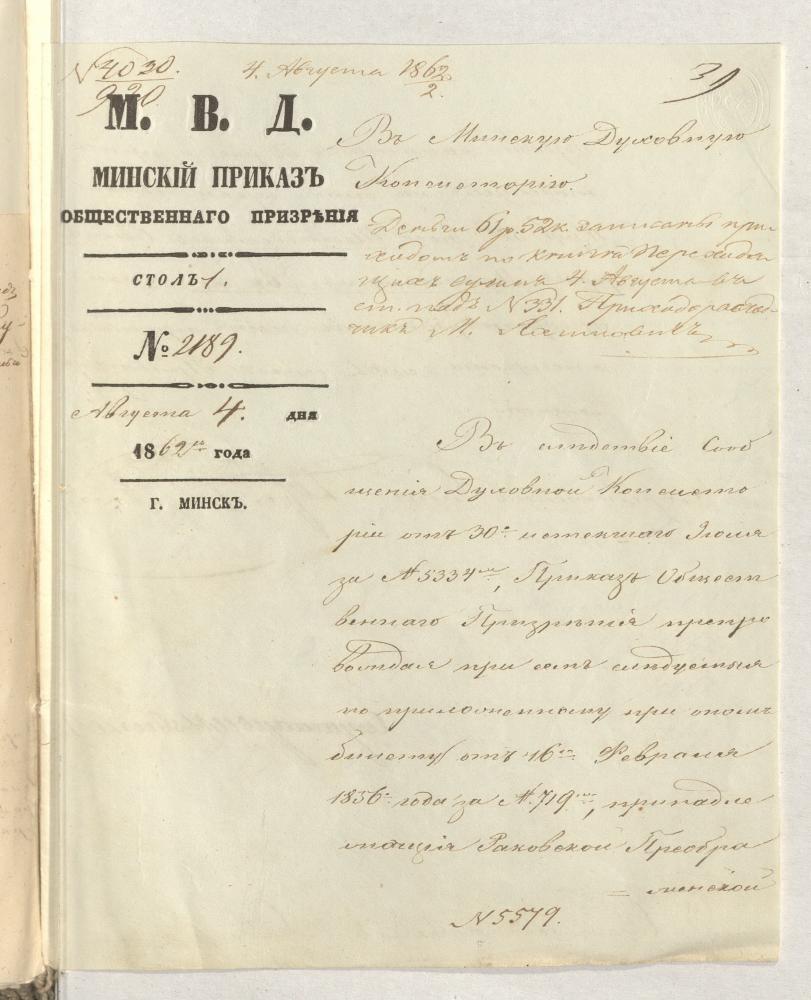 N 4030.
920.
4. Августа 1862/2.
39
М. В. Д.
МИНСКІЙ ПРИКАЗЪ
ОБЩЕСТВЕННАГО ПРИЗРѢНІЯ
СТОЛЪ 1.
№ 2189.
Августа 4. дня
1862го года
Г. МИНСКЪ.
Въ Минскую Духовную
Консисторію.
Деньги 61 р. 52 к. записаны при-
ходомъ по книгѣ Переходя-
щихъ суммъ 4. Августа въ
ст. подъ N 331. Приходорасход-
чикъ М.
Въ слѣдствіе Сооб
щенія Духовной Консисто
ріи отъ 30го истекшаго Іюля
за № 5334мъ, Приказъ Общест
веннаго Призрѣнія препро
вождая при семъ слѣдуемыя
по приложенному при ономъ
билету отъ 16го Февраля
1856го года за №. 719мъ, принадле
жащія Раковской Преобра
= женской
N 5579.